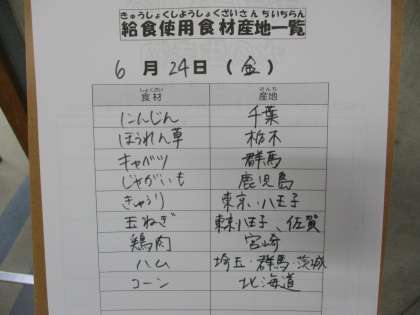 きゅうしょくしようしょくざいさんちいちらん
給食使用食材産地一覧
6月24日(金)
しょくざい さんち
食材 産地
にんじん 千葉
ほうれん草 栃木
キャベツ 群馬
じゃがいも 鹿児島
きゅうり 東京・八王子
玉ねぎ 東京・八王子、佐賀
鶏肉 宮崎
ハム 埼玉・群馬・茨城
コーン 北海道